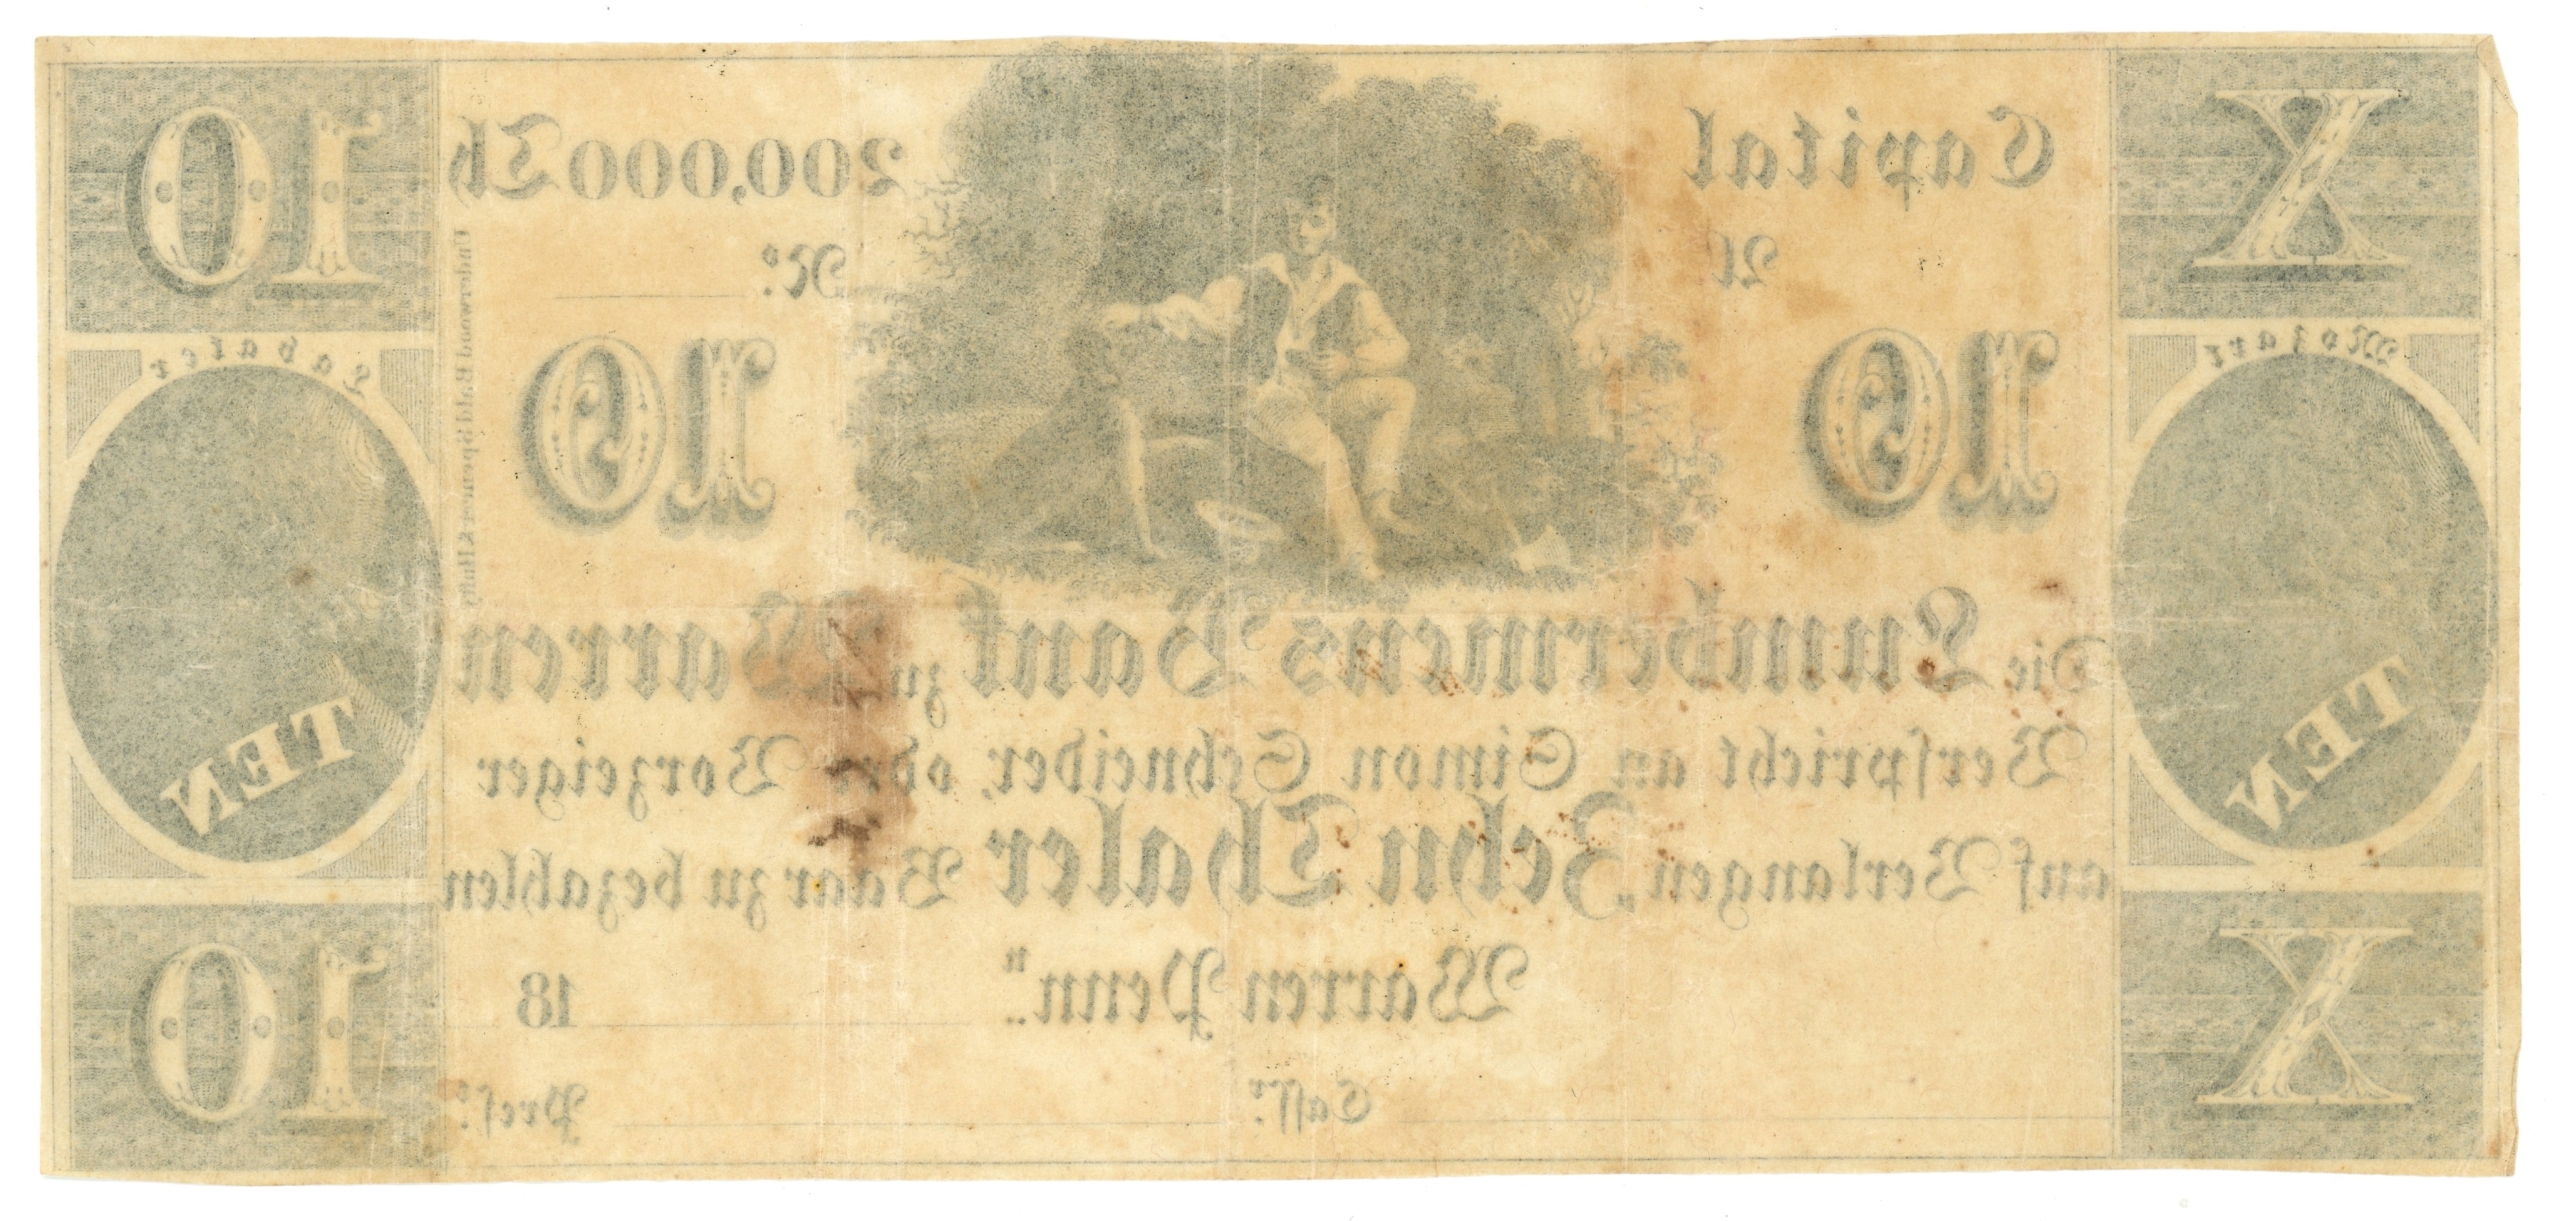 X
Capital
200,000 Th
10
A
No.
Mozart
Lavater
10
10
Underwood Bald Spencer & Hufty
Die Lumbermens Bank zu Warren
TEN
TEN
Verspricht an Simon Schneider, oder Vorzeiger
auf Verlangen, Zehn Thaler Baar zu bezahlen
X
Warren Penn"
18
10
Cassr.
Presr.